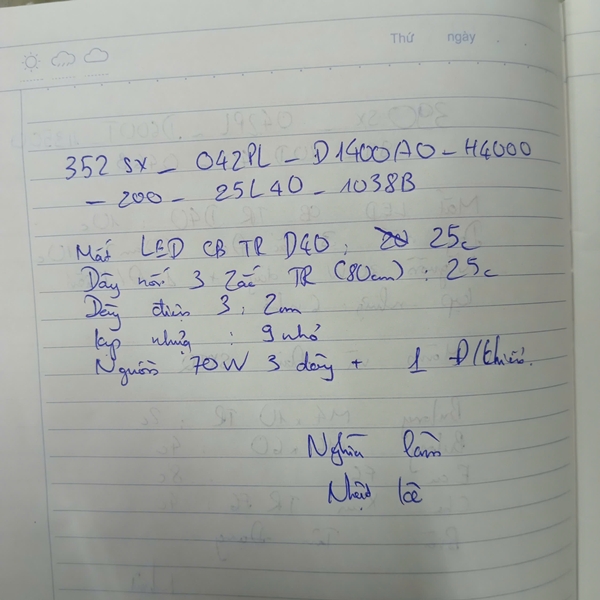 Thứ ngày
352 SX - 042PL - D1400A0 - H4000
- 200 - 25L40 - 1038B
Mắt LED CB TR D40 : 25c
Dây nối 3 Zắc TR (80cm) : 25c
Dây điện 3 : 2m
kẹp nhựa : 9 nhỏ
Nguồn 70W 3 dây + 1 Đ/khiển.
Nghĩa làm